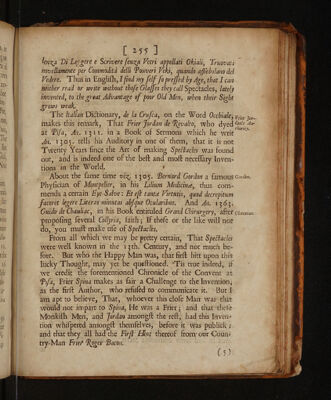 [ 255 ]
senza Di Leggere e Scrivere senza Vetri appellati Okiali, Truovati
novellamente per Commodità delli Poveri Veki, quando affiebolano del
Vedere. Thus in English, I find my self so pressed by Age, that I can
neither read or write without those Glasses they call Spectacles, lately
invented, to the great Advantage of poor Old Men, when their Sight
grows weak.
The Italian Dictionary, de la Crusca, on the Word Occhiale,
makes this remark, That Frier Jordan de Rivalto, who dyed
at Pisa, An. 1311. in a Book of Sermons which he writ
An. 1305. tells his Auditory in one of them, that it is not
Twenty Years since the Art of making Spectacles was found
out, and is indeed one of the best and most necessary Inven-
tions in the World.
About the same time viz. 1305. Bernard Gordon a famous
Physician of Montpelier, in his Lilium Medicinæ, thus com-
mends a certain Eye-Salve: Et est tantæ Virtutis, quod decrepitum
faceret legere Literas minutas absque Ocularibus. And An. 1363.
Guido de Chauliac, in his Book entituled Grand Chirurgery, after
proposing several Collyria, saith; If these or the like will not
do, you must make use of Spectacles.
From all which we may be pretty certain, That Spectacles
were well known in the 13th. Century, and not much be-
fore. But who the Happy Man was, that first hitt upon this
lucky Thought, may yet be questioned. 'Tis true indeed, if
we credit the forementioned Chronicle of the Convent at
Pisa, Frier Spina makes as fair a Challenge to the Invention,
as the first Author, who refused to communicate it. But I
am apt to believe, That, whoever this close Man was that
would not impart to Spina, He was a Frier; and that these
Monkish Men, and Jordan amongst the rest, had this Inven-
tion whispered amongst themselves, before it was publick;
and that they all had the First Hint thereof from our Coun-
try-Man Frier Roger Bacon.
(5)